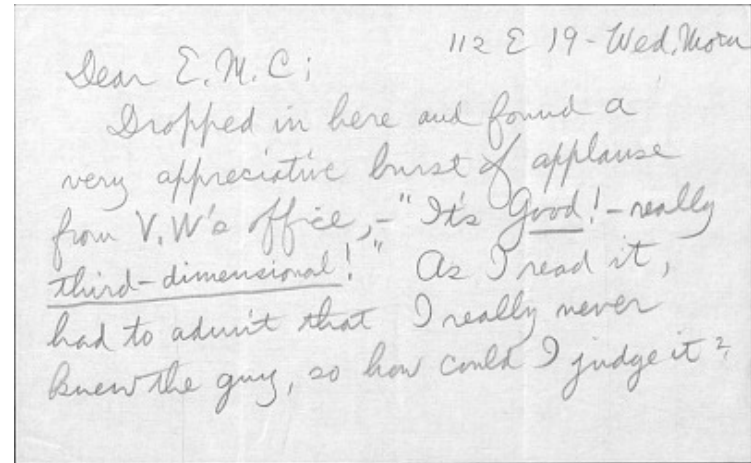 112 E 19 - Wed. Morn
Dear E. M. C;
Dropped in here and found a
very appreciative burst of applause
from V.W's office, - "It's Good! - really
third-dimensional!" As I read it,
had to admit that I really never
knew the guy, so how could I judge it?